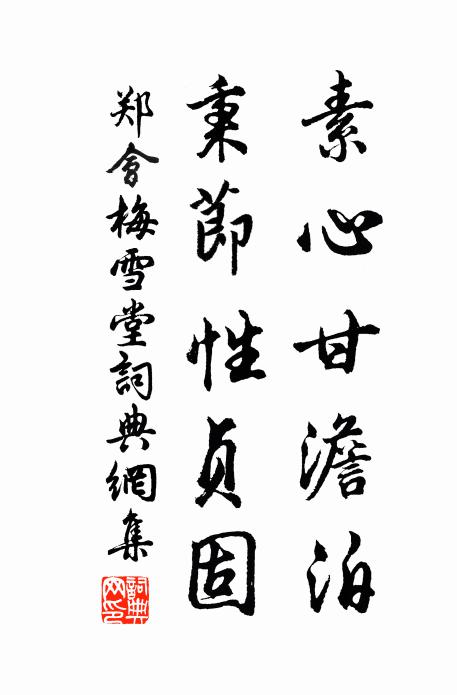 素心甘澹泊
秉節性貞固
郑會梅雪堂詞典網集
詞典网印